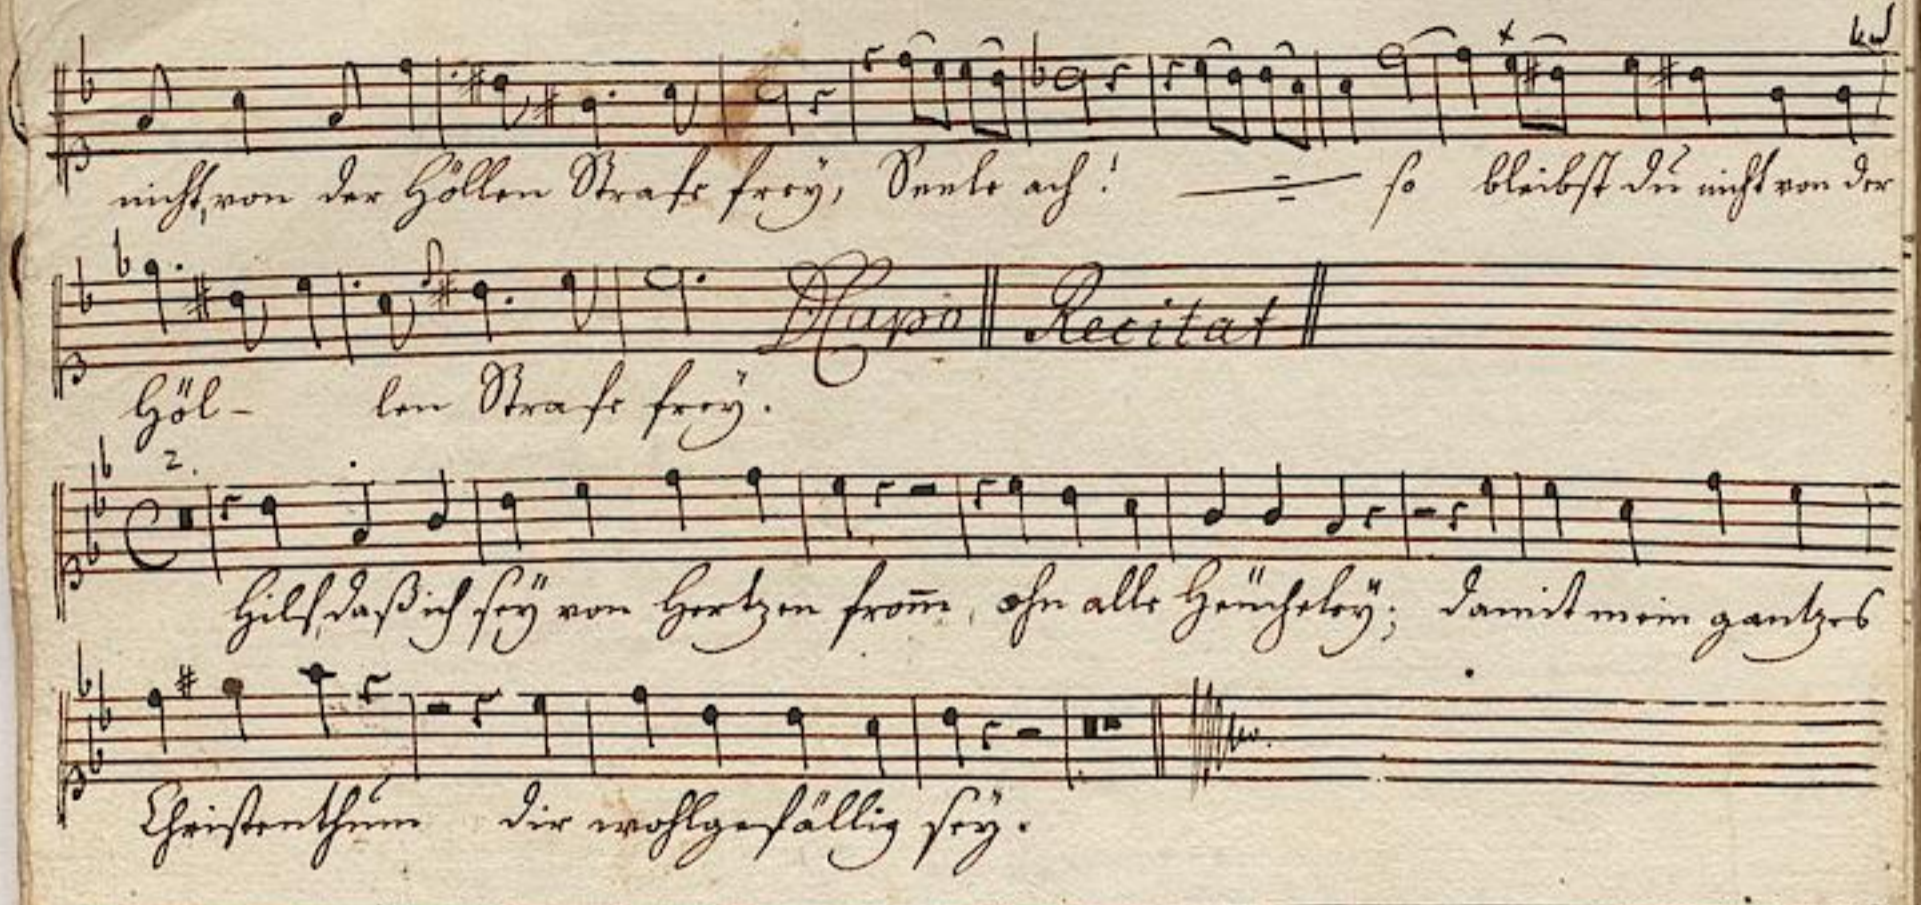 nicht, von der Höllen Strafe frey, Seele ach! so bleibst du nicht von der
D Capo Recitat
Höl- len Strafe frey.
2.
Hilf, daß ich sey von Hertzen from̄, ohn alle Heücheley; damit mein gantzes
Christenthum dir wohlgefällig sey.